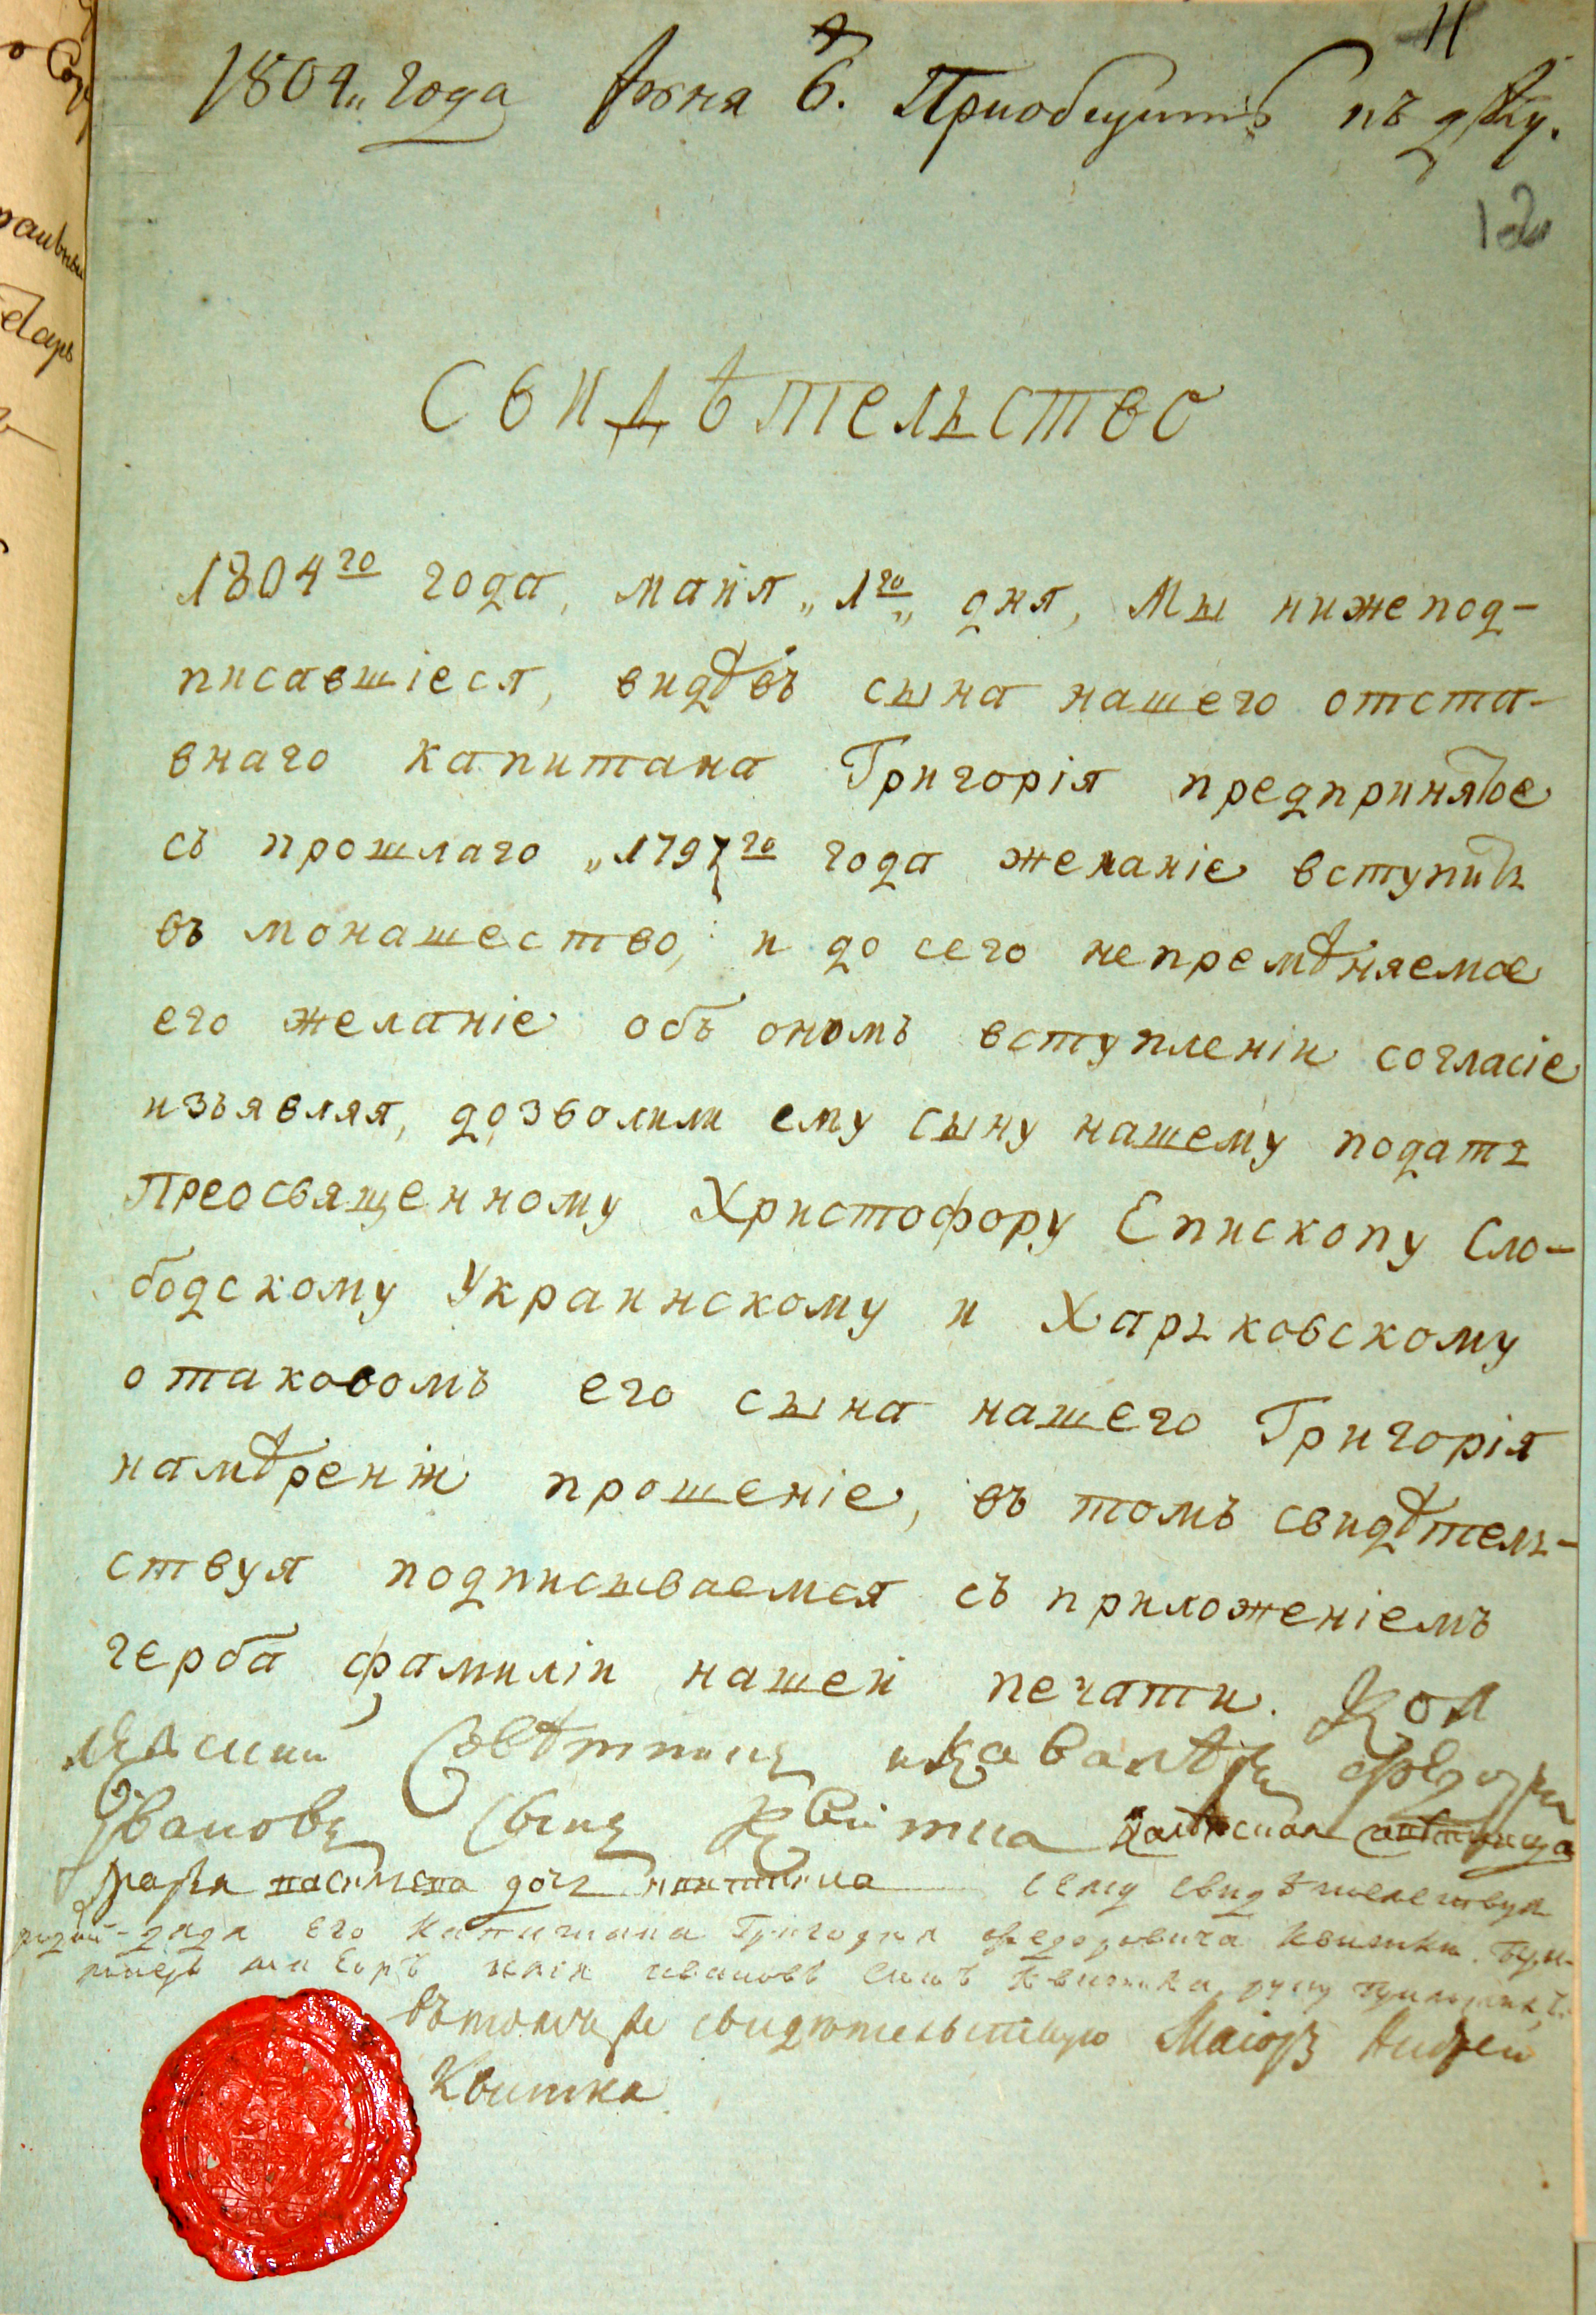 11
1804„ года Июня 6. Приобщить къ дѣлу.
12
СВИДѢТЕЛЬСТВО
1804го года, майя „1го„ дня, Мы нижепод-
писавшіеся, видѣвъ сына нашего отста-
внаго капитана Григорія предпринятое
съ прошлаго „1797го года желаніе вступить
въ монашество, и до сего непремѣняемое
его желаніе объ ономъ вступленіи согласіе
изъявляя, дозволили ему сыну нашему подать
Преосвященному Христофору Епископу Сло-
бодскому Украинскому и Харьковскому
о таковомъ его сына нашего Григорія
намѣреніи прошеніе, въ томъ свидѣтель-
ствуя подписываемся съ приложеніемъ
герба фамиліи нашей печати. Кол
Совѣтникъ и кавалѣръ Федоръ
Ивановъ Сынъ Квитка
дочь семуже свидѣтелствуя
родной дядя его Капитана Григория Федоровича Квитки
маеоръ илия ивановъ синъ Квитка руку приложилъ.
въ томъ же свидѣтельствую Маіоръ Андрей
Квитка